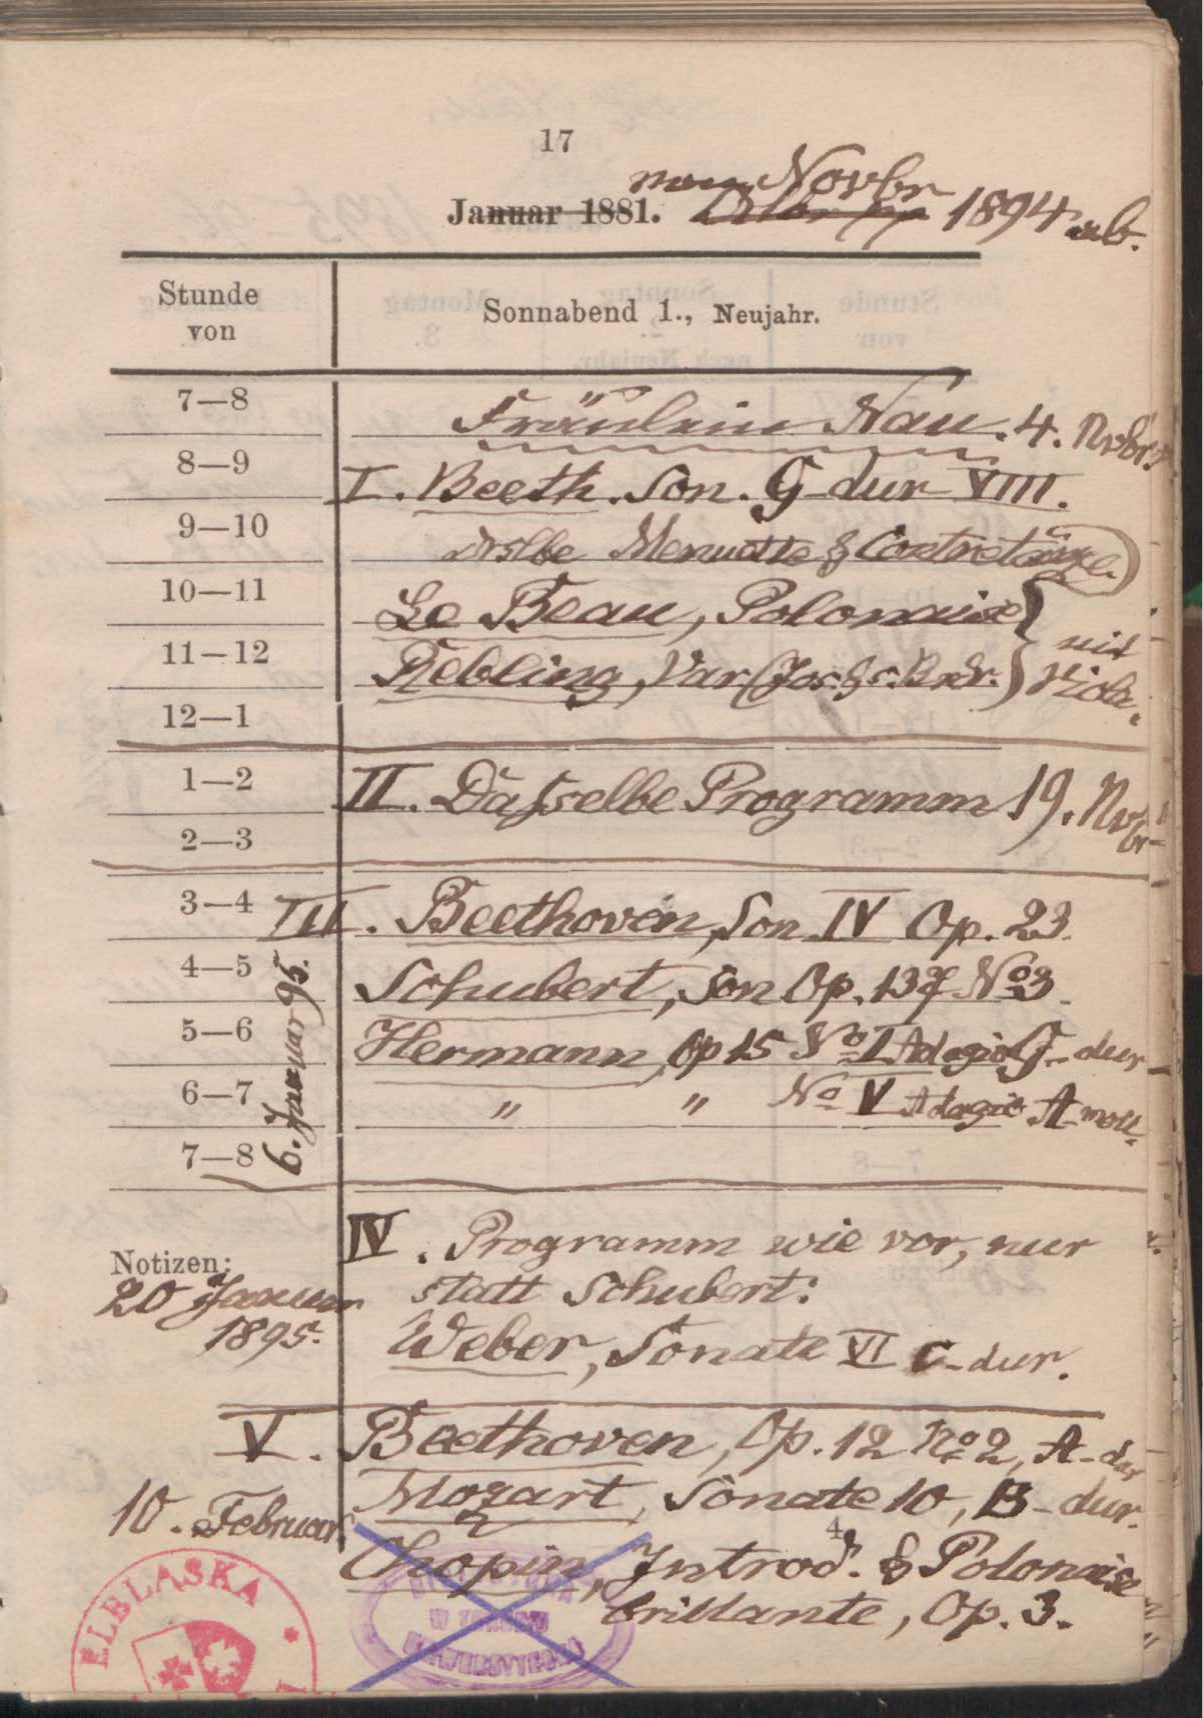 17
Januar 1881. Novbr 1894 ab.
Stunde von
Sonnabend 1., Neujahr.
7—8
Fräulein Nau. 4. Nvbr.
8—9
I. Beeth. Son. G-dur VIII.
9—10
Menuette & Contretänze.)
10—11
Le Beau, Polonaise } mit
11—12
Rebling, Var. (Jos. & s. Brdr.) } Viola.
12—1
1—2
II. Dasselbe Programm 19. Nvbr
2—3
3—4
III. Beethoven, Son IV Op. 23.
6. Januar 95.
4—5
Schubert, Son Op. 137 No 3.
5—6
Hermann, Op 15 No I Adagio G-dur
6—7
" " No V Adagio A-moll.
7—8
IV. Programm wie vor, nur
Notizen:
20 Januar
statt Schubert:
1895.
Weber, Sonate VI C-dur.
V. Beethoven, Op. 12 No 2, A-dur
Mozart, Sonate 10, B-dur.
10. Februar
4
Chopin, Introd. & Polonaise
brillante, Op. 3.
ELBLASKA
W TORUNIU